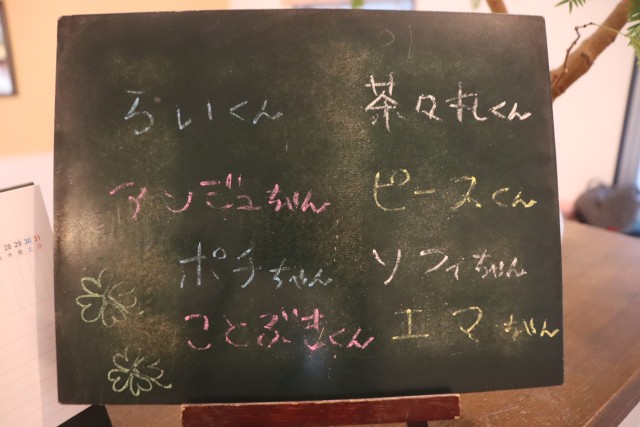 らいくん 茶々丸くん
アンジュちゃん ピースくん
ポチちゃん ソフィちゃん
ことぶきくん エマちゃん
28 29 30 31
木 金 土 日